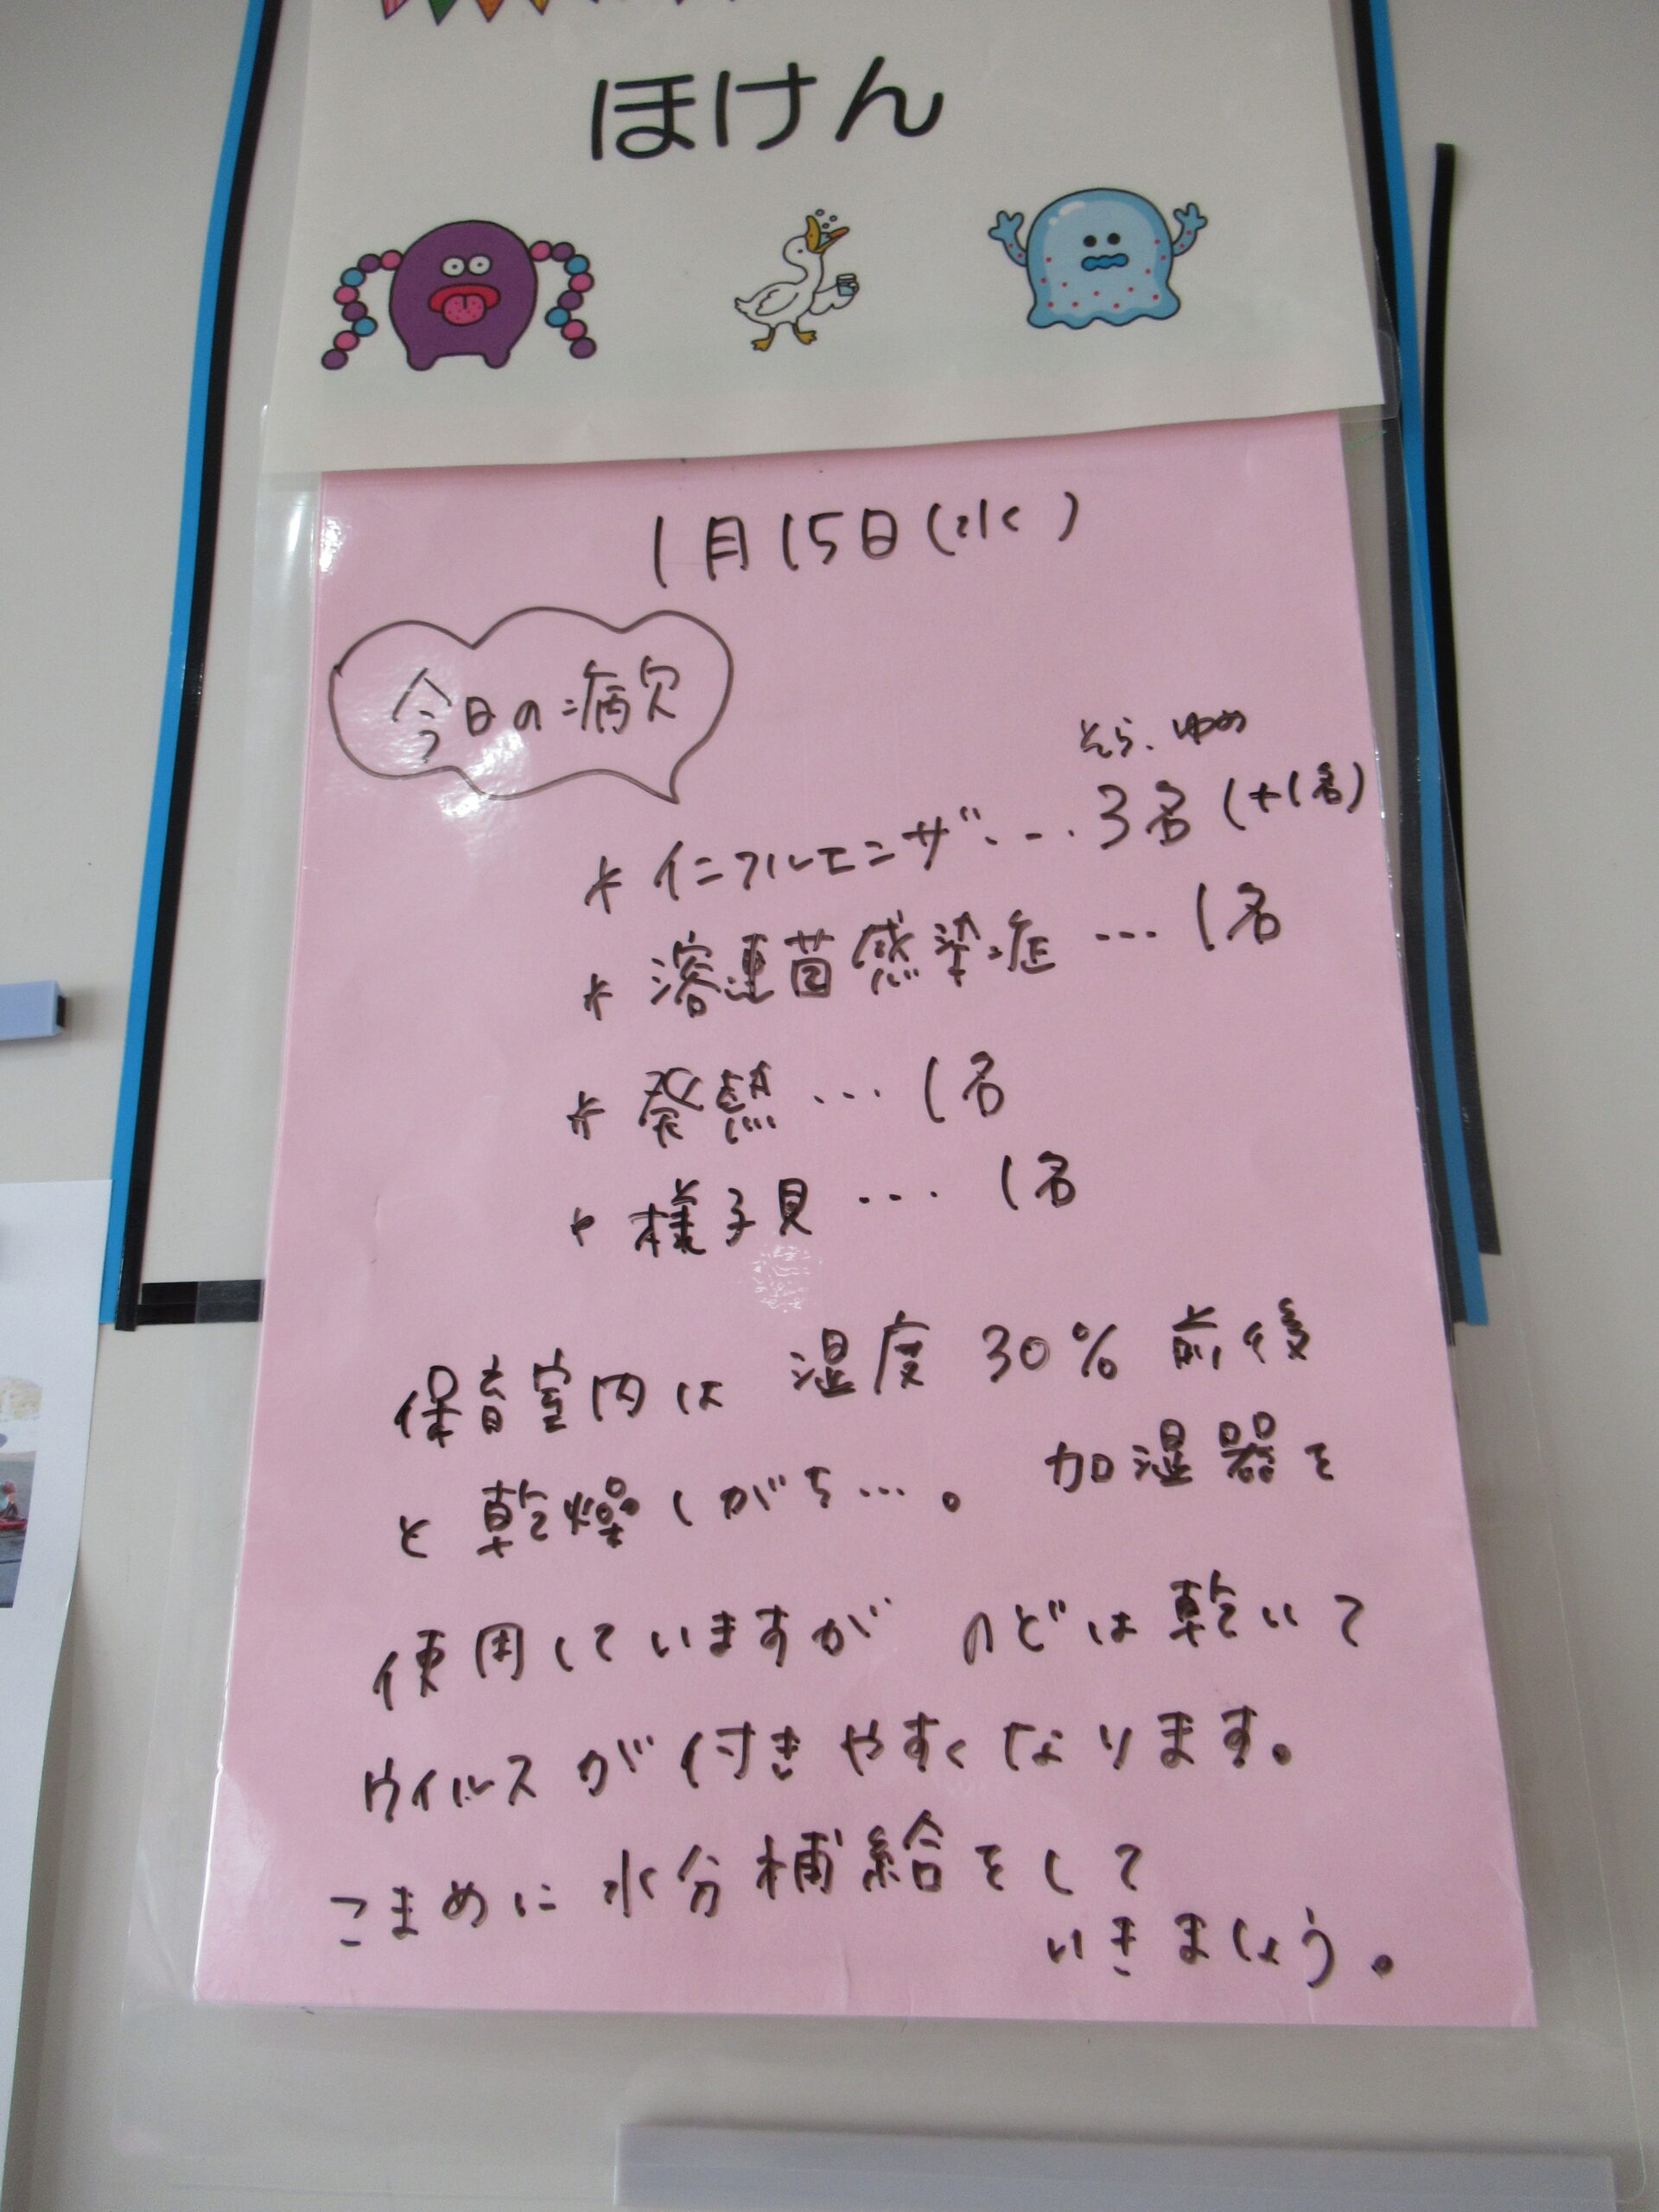 ほけん
1月15日(水)
今日の病欠
そら、ゆめ
* インフルエンザ・・・・3名(+1名)
* 溶連菌感染症・・・1名
* 発熱・・・1名
* 様子見・・・・1名
保育室内は 湿度30%前後
と乾燥しがち…。 加湿器を
使用していますが のどは乾いて
ウイルスが付きやすくなります。
こまめに水分補給をして
いきましょう。